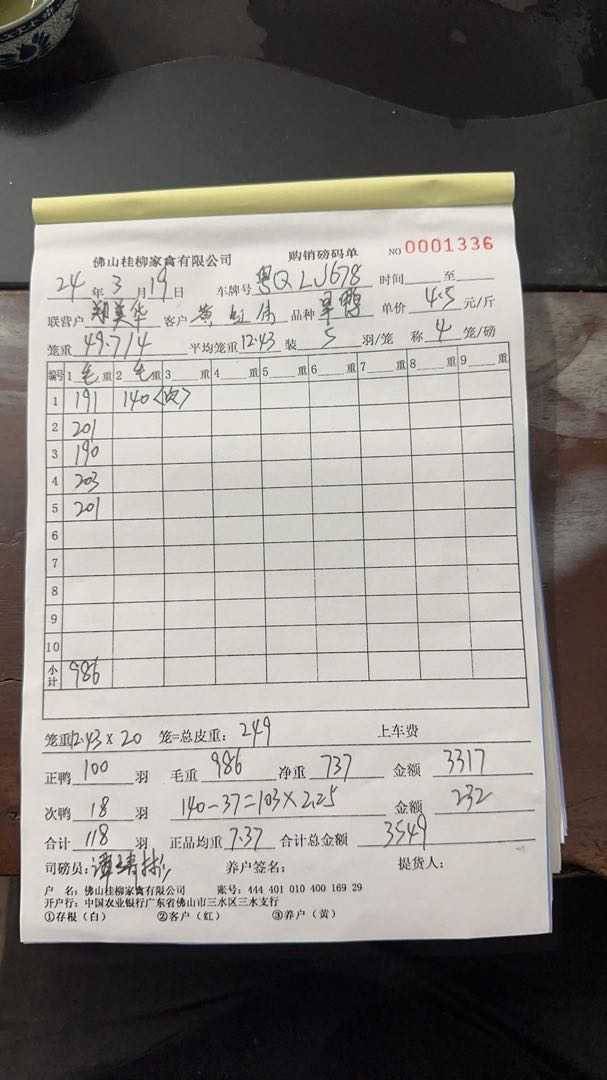 佛山桂柳家禽有限公司 购销磅码单 NO 0001336
24 年 3 月 19 日 车牌号 粤Q LJ678 时间 至
联营户 郑美华 客户 黄 品种 单价 4.5 元/斤
笼重 49.714 平均笼重 12.43 装 5 羽/笼 称 4 笼/磅
编号 1 毛 重 2 毛 重 3 重 4 重 5 重 6 重 7 重 8 重 9 重
1 191 140<次>
2 201
3 190
4 203
5 201
6
7
8
9
10
小计 986
笼重12.43 × 20 笼=总皮重: 249 上车费
正鸭 100 羽 毛重 986 净重 737 金额 3317
次鸭 18 羽 140-37=103×2.25 金额 232
合计 118 羽 正品均重 7.37 合计总金额 3549
司磅员: 养户签名: 提货人:
户 名: 佛山桂柳家禽有限公司 账号: 444 401 010 400 169 29
开户行: 中国农业银行广东省佛山市三水区三水支行
①存根(白) ②客户(红) ③养户(黄)